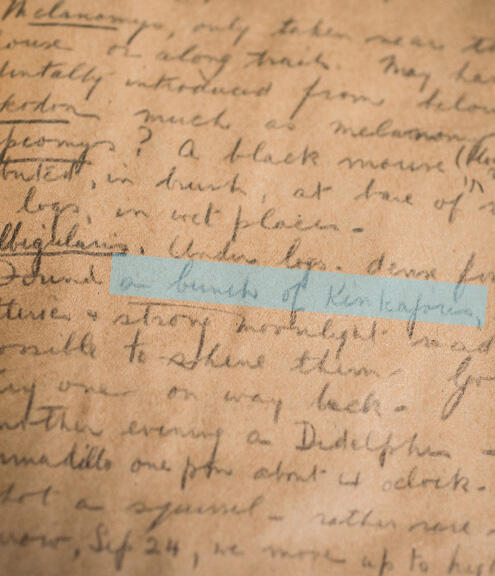 Melanomys, only taken near
ouse or along trail. May ha
dentally introduced from below
kodon much as melanomys
peomys? A black mouse
buted, in brush, at base of
logs, in wet places -
lbigularis. Under logs. dense
Found a bunch of Kinkajous,
tteries & strong moonlight mad
ossible to shine them - Go
one on way back -
nother evening a Didelphis -
rmadillo one pm about 4 oclock -
hot a squirrel - rather rare
rrow, Sep 24, we move up to